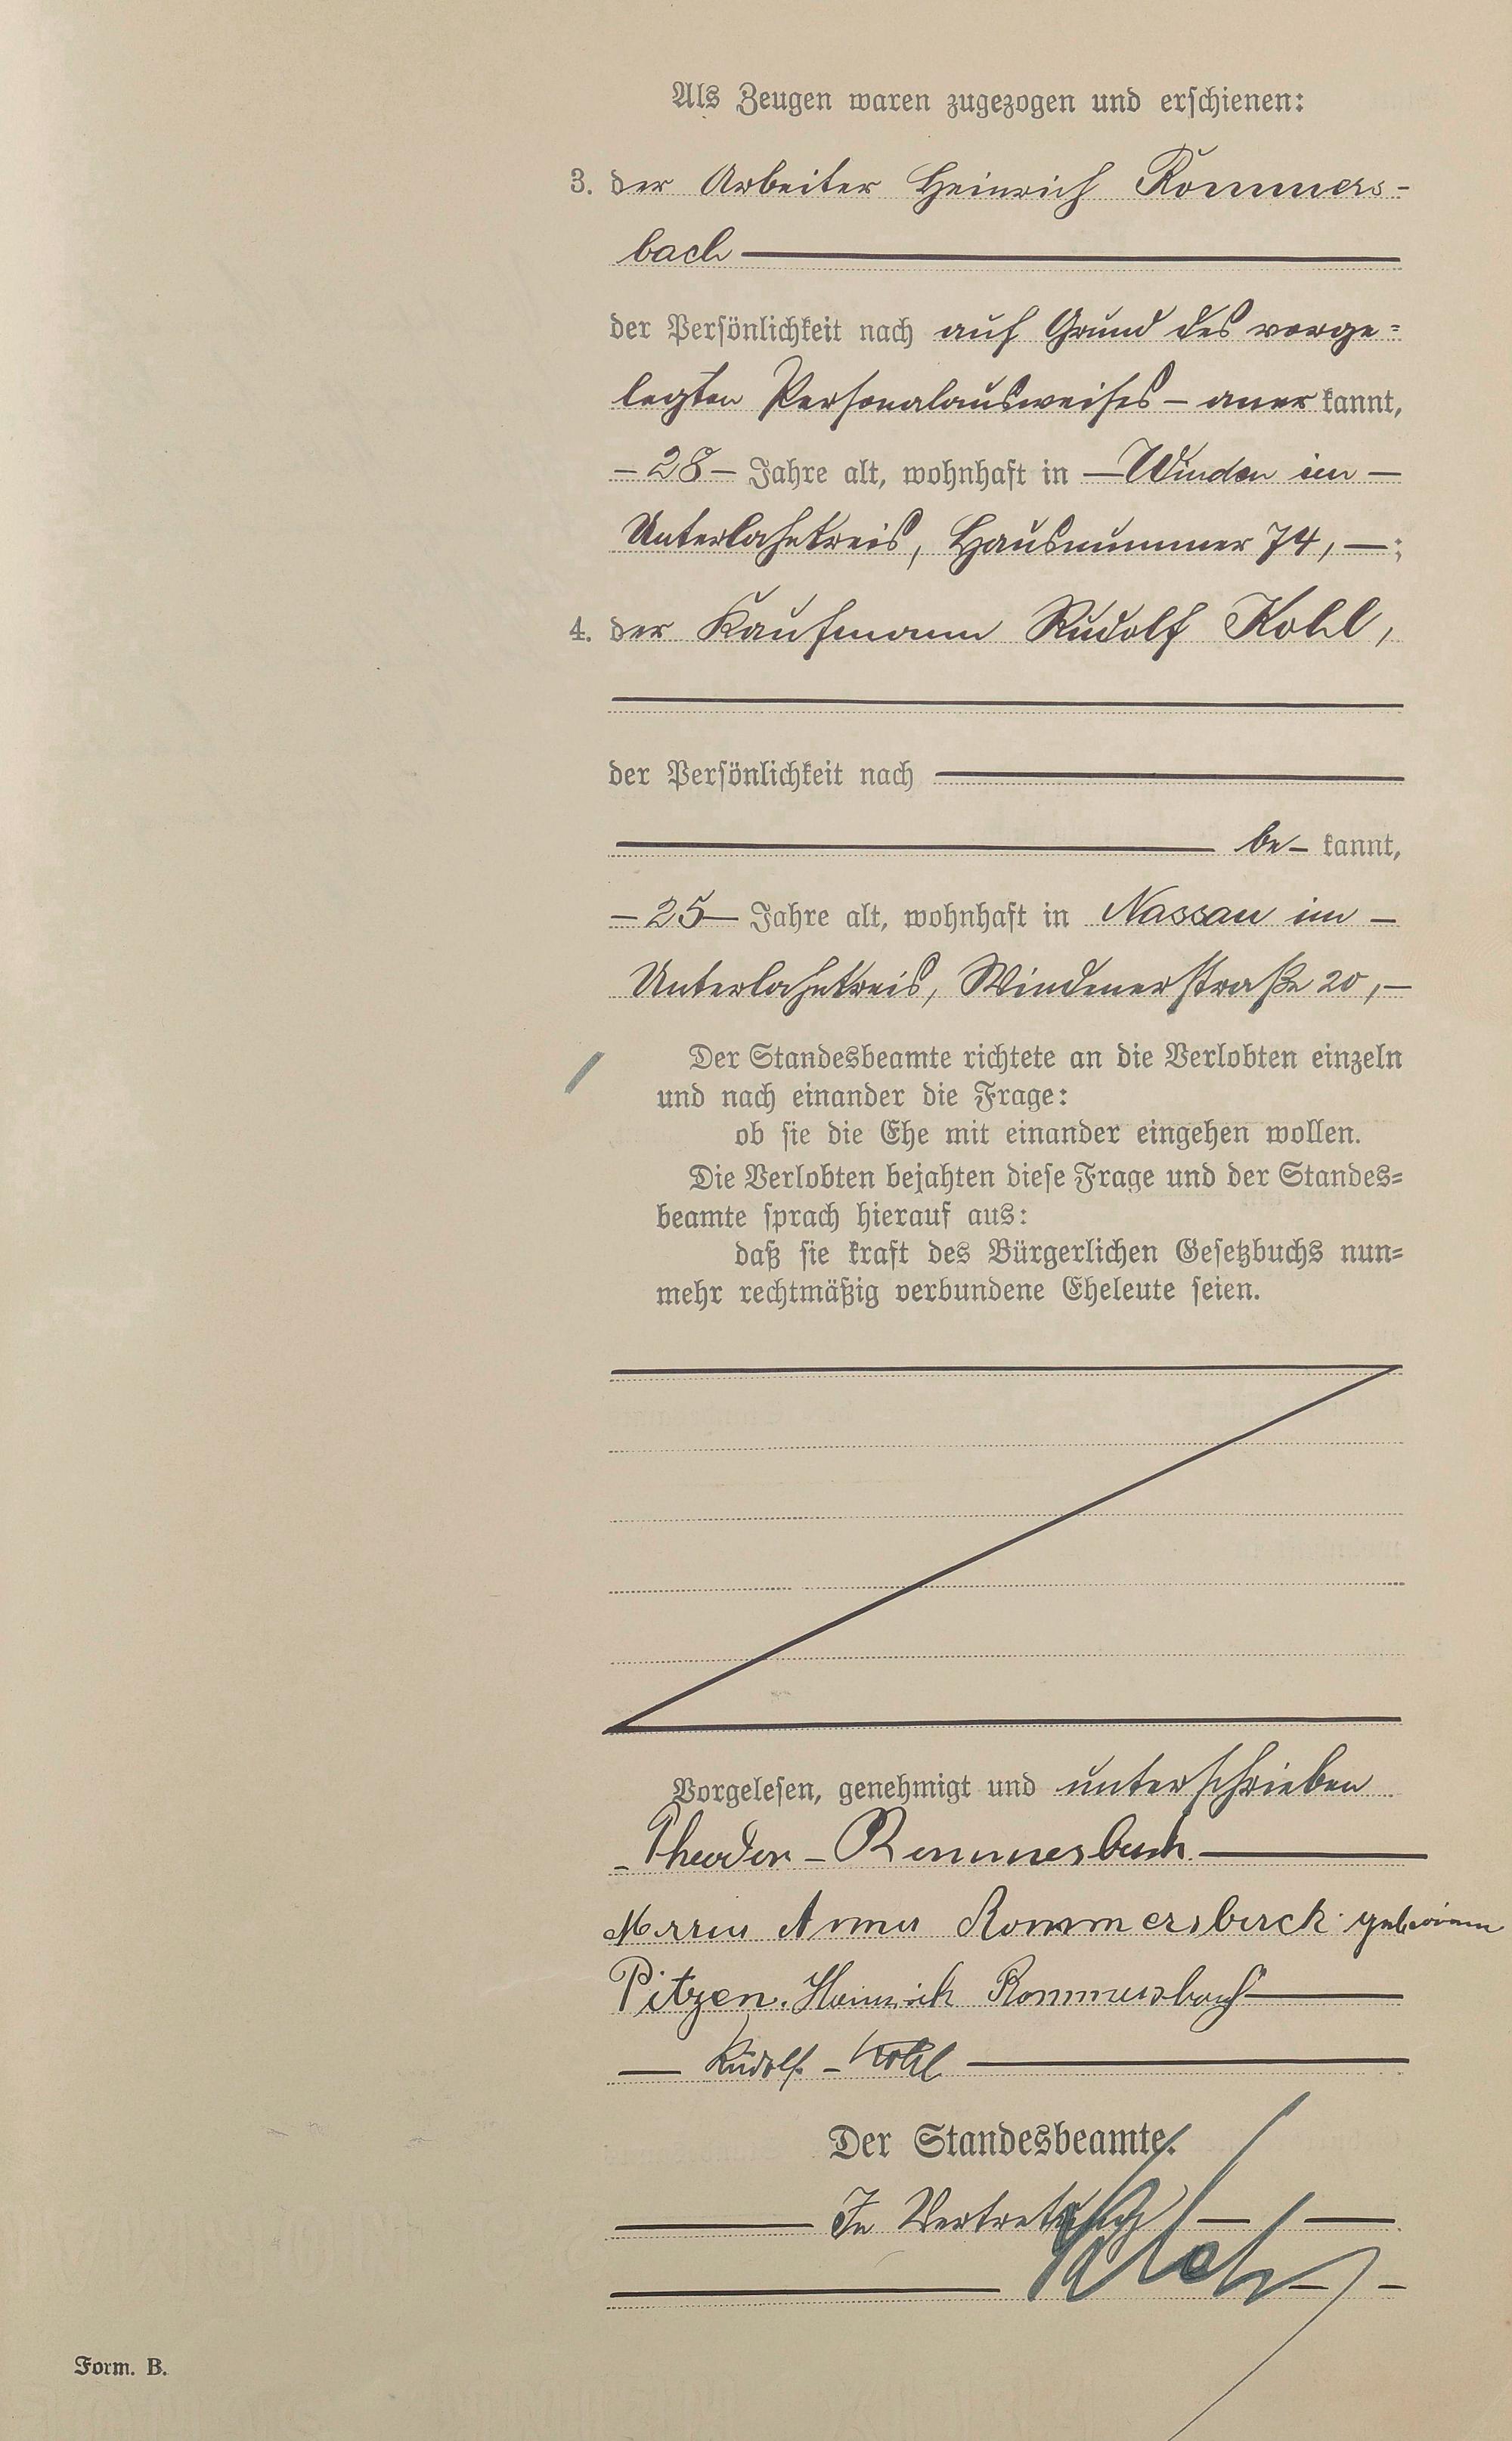 Als Zeugen waren zugezogen und erschienen:
3. der Arbeiter Heinrich Rommers-
bach
der Persönlichkeit nach auf Grund des vorge-
legten Personalausweises - aner kannt,
- 28 - Jahre alt, wohnhaft in - Winden im -
Unterlahnkreis, Hausnummer 74, - ;
4. der Kaufmann Rudolf Kohl,
der Persönlichkeit nach
be- kannt,
- 25 - Jahre alt, wohnhaft in Nassau im -
Unterlahnkreis, Windenerstraße 20, -
Der Standesbeamte richtete an die Verlobten einzeln
und nach einander die Frage:
ob sie die Ehe mit einander eingehen wollen.
Die Verlobten bejahten diese Frage und der Standes-
beamte sprach hierauf aus:
daß sie kraft des Bürgerlichen Gesetzbuchs nun-
mehr rechtmäßig verbundene Eheleute seien.
Vorgelesen, genehmigt und unterschrieben
- Theodor - Rommersbach
Maria Anna Rommersbach geborenen
Pitzen. Heinrich Rommersbach
Rudolf - Kohl
Der Standesbeamte.
In Vertretung
Form. B.